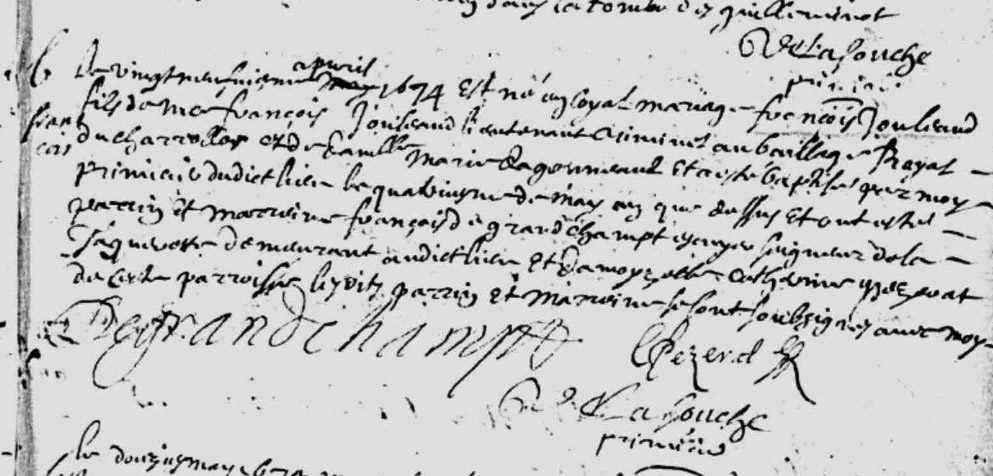 dans la tombe des guilleminot
De La Souche
primicié
Le vingt neufviesme apvril may 1674 Est né en loyal mariage françois Jouleaud
fran
cois
fils de Me françois Jouleaud lieutenant Criminel au bailliage Royal
du charrollois et de damelle Marie dagonneaud Et a esté baptisé par moy
primicié dudict lieu le quatriesme de may an que dessus Et ont estés
parrin et marreine françois de grandchampt escuyer seigneur de la
demeurant audict lieu Et damoyzelle Catherine
de ceste parroisse lesdits parrin Et Marreine se sont soubsignés avec moy
Degrandchampt CPezerd
De La Souche
primicié
Le douz may